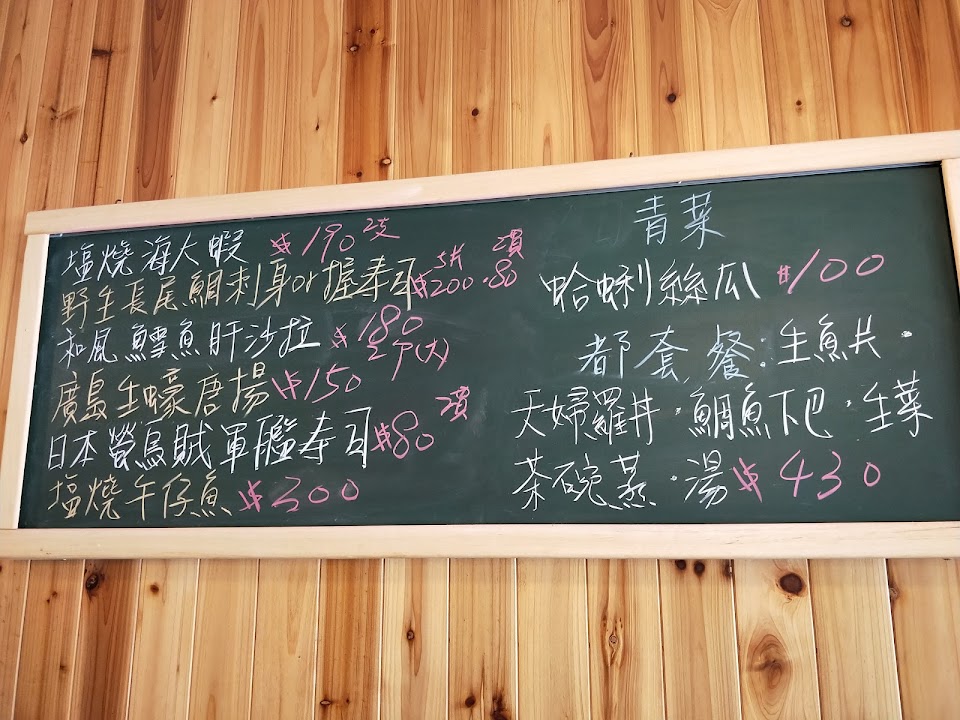 塩燒海大蝦 $190 2支
野生長尾鯛刺身or握寿司 $200 5片 .80 2貫
和風鱈魚肝沙拉 $180
(大)
廣島生蠔唐揚 $150
日本螢烏賊軍艦寿司 $80 2貫
塩燒午仔魚 $300
青菜
蛤蜊絲瓜 $100
都套餐:生魚片.
天婦羅丼.鯛魚下巴.生菜
茶碗蒸.湯 $430